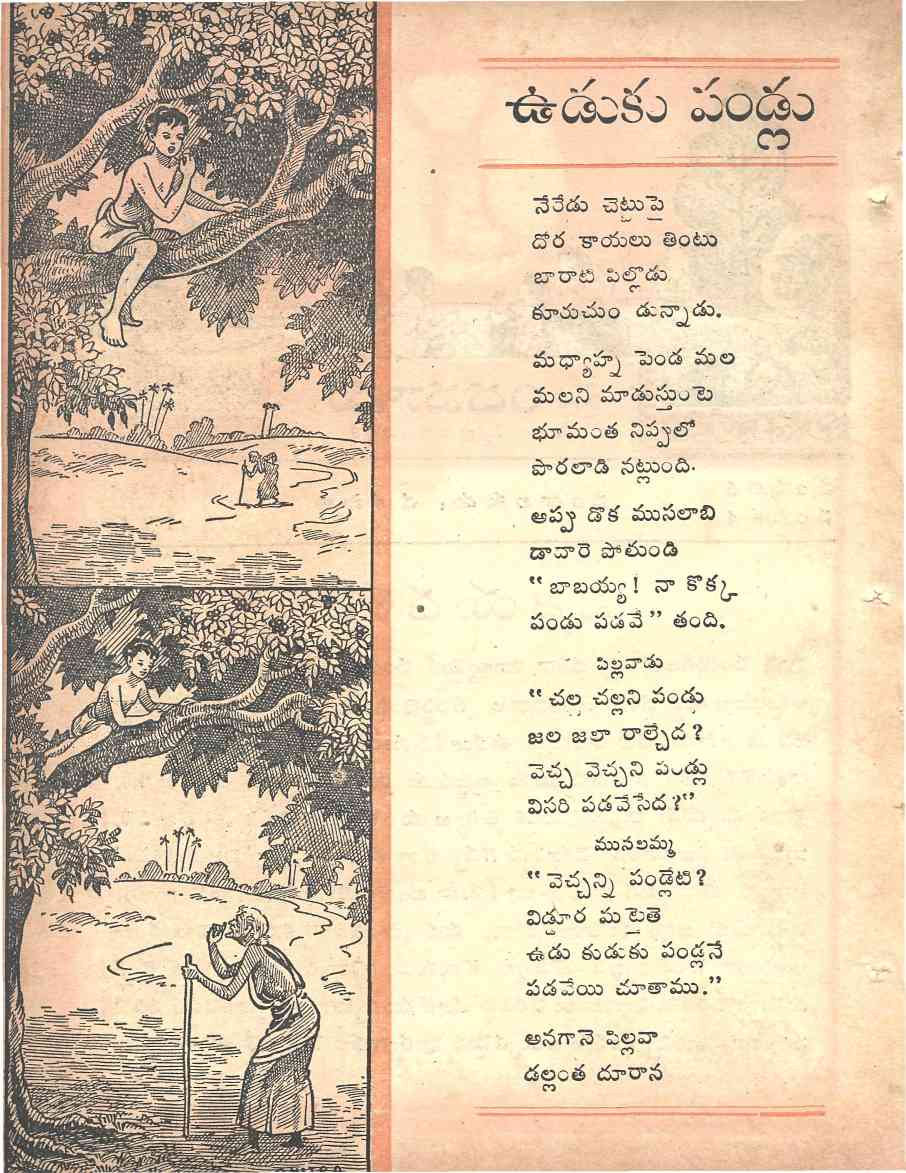 ఉడుకు పండ్లు
నేరేడు చెట్టుపై
దోర కాయలు తింటు
బారాటి పిల్లొడు
కూరుచుం డున్నాడు.
మధ్యాహ్న పెండ మల
మలని మాడుస్తుంటె
భూమంత నిప్పులో
పొరలాడి నట్లుంది.
అప్పు డొక ముసలాబి
డావారె పోతుండి
“ బాబయ్య! నా కొక్క
పండు పడవే” తంది.
పిల్లవాడు
“ చల్ల చల్లని పండు
జల జలా రాల్చేద?
వెచ్చ వెచ్చని పండ్లు
విసరి పడవేసేద?”
ముసలమ్మ
“ వెచ్చన్ని పండ్లేటి?
విడ్డూర మట్టైతె
ఉడు కుడుకు పండ్లనే
పడవేయి చూతాము.”
అనగానె పిల్లవా
డల్లంత దూరాన